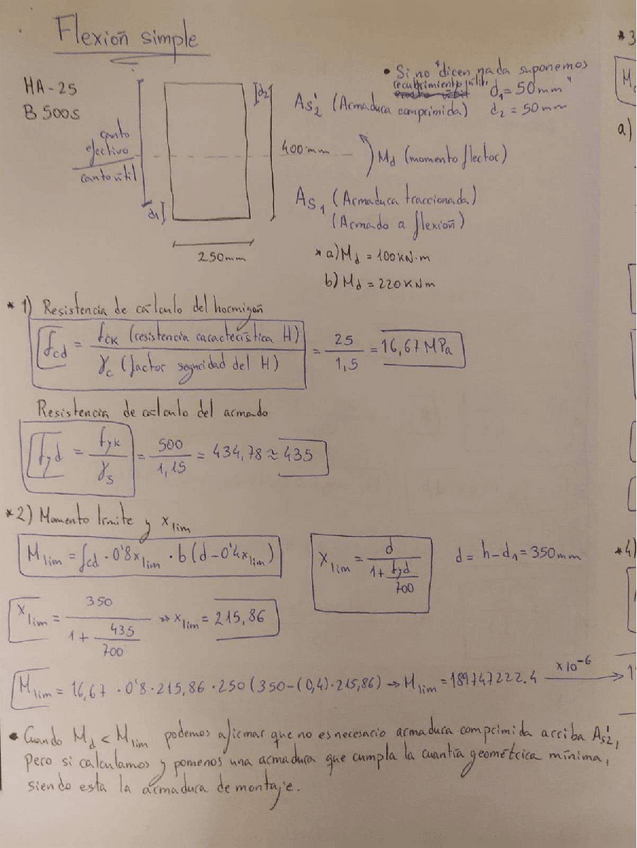 Flexión simple
HA-25
B 500S
canto
efectivo
canto útil
d1
d2
400 mm
250mm
• Si no "dicen nada suponemos
recubrimiento d1 = 50mm"
As2' (Armadura comprimida) d2 = 50mm
Md (momento flector)
As1 (Armadura traccionada)
(Armado a flexión)
* a) Md = 100kN·m
b) Md = 220KNm
* 1) Resistencia de cálculo del hormigón
fcd = fck (resistencia característica H) / γc (factor seguridad del H) = 25 / 1,5 = 16,67 MPa
Resistencia de cálculo del armado
fyd = fyk / γs = 500 / 1,15 = 434,78 ≈ 435
* 2) Momento límite y xlim
Mlim = fcd · 0'8xlim · b (d-0'4xlim)
xlim = d / 1+ fyd / 700
d = h-d1 = 350mm
xlim = 350 / 1 + 435 / 700 => xlim = 215,86
Mlim = 16,67 · 0'8 · 215,86 · 250 (350-(0,4)·215,86) → Mlim = 189747222.4 x10-6 → 1
• Cuando Md < Mlim podemos afirmar que no es necesario armadura comprimida arriba As2',
pero si calculamos y pomenos una armadura que cumpla la cuantía geométrica mínima,
siendo esta la armadura de montaje.
*3
Md
a)
*4)